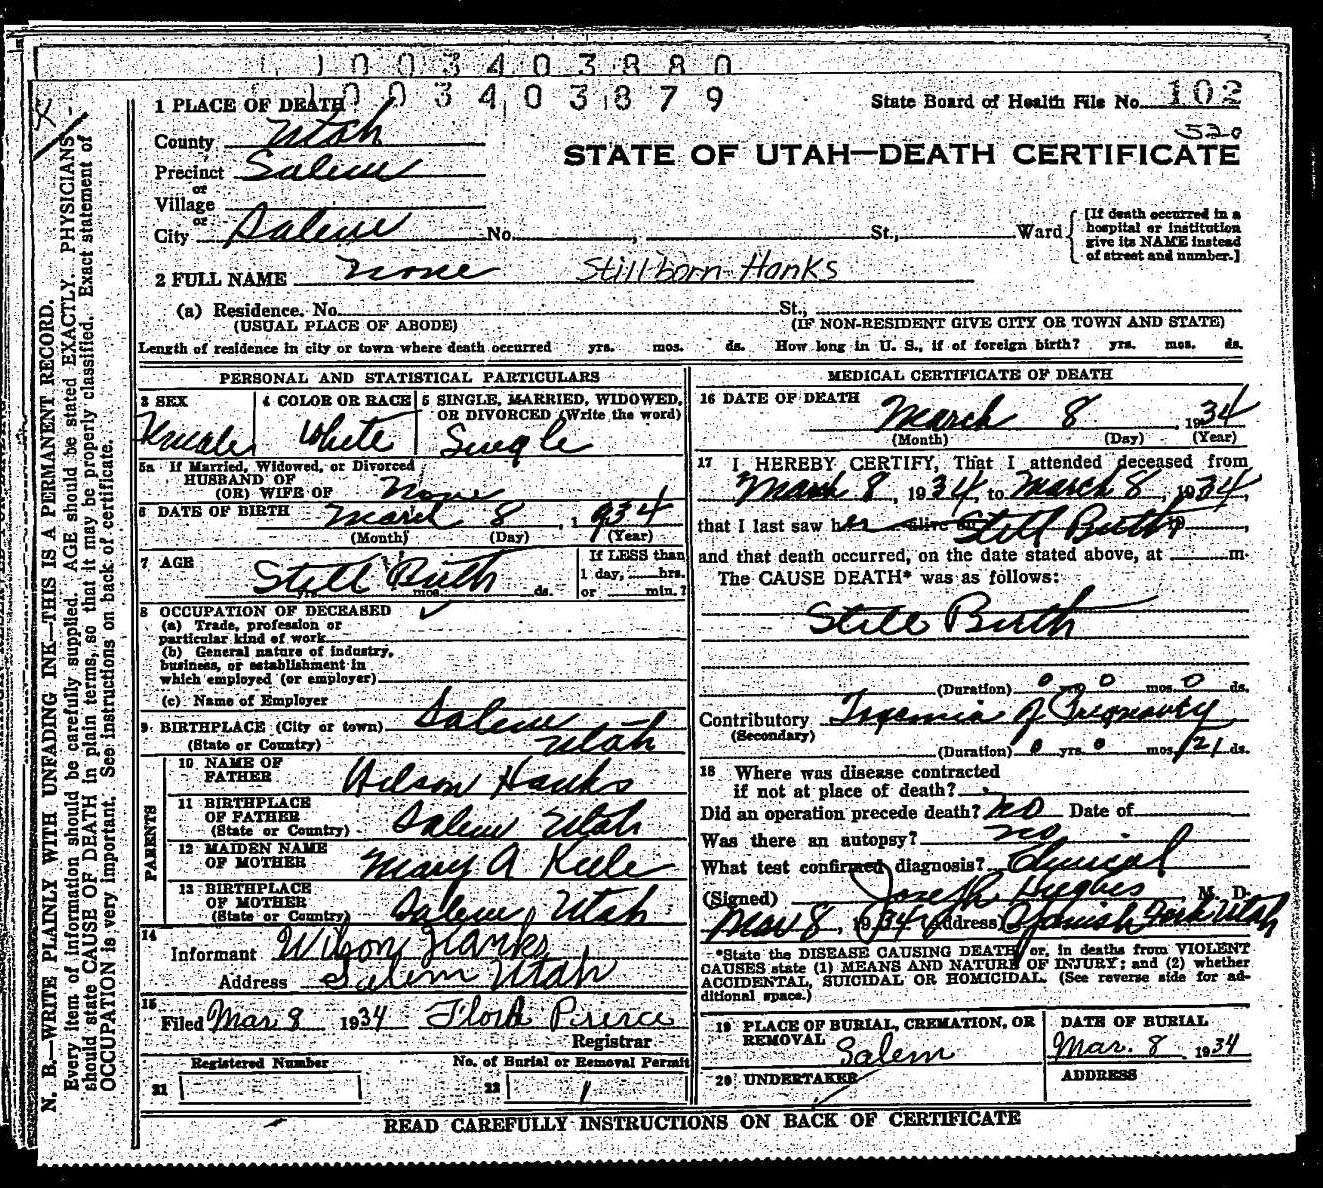 1003403880
1003403879
1 PLACE OF DEATH
State Board of Health File No. 102
County Utah
520
STATE OF UTAH—DEATH CERTIFICATE
Precinct Salem
or
Village
or
City Salem No. , St., Ward
[If death occurred in a
hospital or institution
give its NAME instead
of street and number.]
2 FULL NAME none Stillborn Hanks
(a) Residence. No. St.,
(USUAL PLACE OF ABODE) (IF NON-RESIDENT GIVE CITY OR TOWN AND STATE)
Length of residence in city or town where death occurred yrs. mos. ds. How long in U. S., if of foreign birth? yrs. mos. ds.
PERSONAL AND STATISTICAL PARTICULARS
3 SEX 4 COLOR OR RACE 5 SINGLE, MARRIED, WIDOWED,
OR DIVORCED (Write the word)
Female White Single
5a If Married, Widowed, or Divorced
HUSBAND OF
(OR) WIFE OF none
6 DATE OF BIRTH March 8, 1934
(Month) (Day) (Year)
7 AGE Still Birth
yrs. mos. ds.
If LESS than
1 day, hrs.
or min.?
8 OCCUPATION OF DECEASED
(a) Trade, profession or
particular kind of work
(b) General nature of industry,
business, or establishment in
which employed (or employer)
(c) Name of Employer
9 BIRTHPLACE (City or town) Salem
(State or Country) Utah
PARENTS
10 NAME OF
FATHER Wilson Hanks
11 BIRTHPLACE
OF FATHER
(State or Country) Salem Utah
12 MAIDEN NAME
OF MOTHER Mary A Keele
13 BIRTHPLACE
OF MOTHER
(State or Country) Salem, Utah
14
Informant Wilson Hanks
Address Salem Utah
15
Filed Mar 8 1934 Flora Pierce
Registrar
Registered Number No. of Burial or Removal Permit
21 22 1
MEDICAL CERTIFICATE OF DEATH
16 DATE OF DEATH
March 8, 1934
(Month) (Day) (Year)
17 I HEREBY CERTIFY, That I attended deceased from
March 8, 1934, to March 8, 1934,
that I last saw her alive on Still Birth 19 ,
and that death occurred, on the date stated above, at m.
The CAUSE DEATH* was as follows:
Still Birth
(Duration) 0 yrs. 0 mos. 0 ds.
Contributory Toxemia of Pregnancy
(Secondary)
(Duration) 0 yrs. 0 mos. 21 ds.
18 Where was disease contracted
if not at place of death?
Did an operation precede death? no Date of
Was there an autopsy? no
What test confirmed diagnosis? Clinical
(Signed) Joseph Hughes M. D.
Mar 8 1934 Address Spanish Fork Utah
*State the DISEASE CAUSING DEATH, or, in deaths from VIOLENT
CAUSES state (1) MEANS AND NATURE OF INJURY; and (2) whether
ACCIDENTAL, SUICIDAL OR HOMICIDAL. (See reverse side for ad-
ditional space.)
19 PLACE OF BURIAL, CREMATION, OR
REMOVAL Salem
DATE OF BURIAL
Mar. 8, 1934
20 UNDERTAKER
ADDRESS
READ CAREFULLY INSTRUCTIONS ON BACK OF CERTIFICATE
N. B.—WRITE PLAINLY WITH UNFADING INK—THIS IS A PERMANENT RECORD.
Every item of information should be carefully supplied. AGE should be stated EXACTLY. PHYSICIANS
should state CAUSE OF DEATH in plain terms, so that it may be properly classified. Exact statement of
OCCUPATION is very important. See instructions on back of certificate.